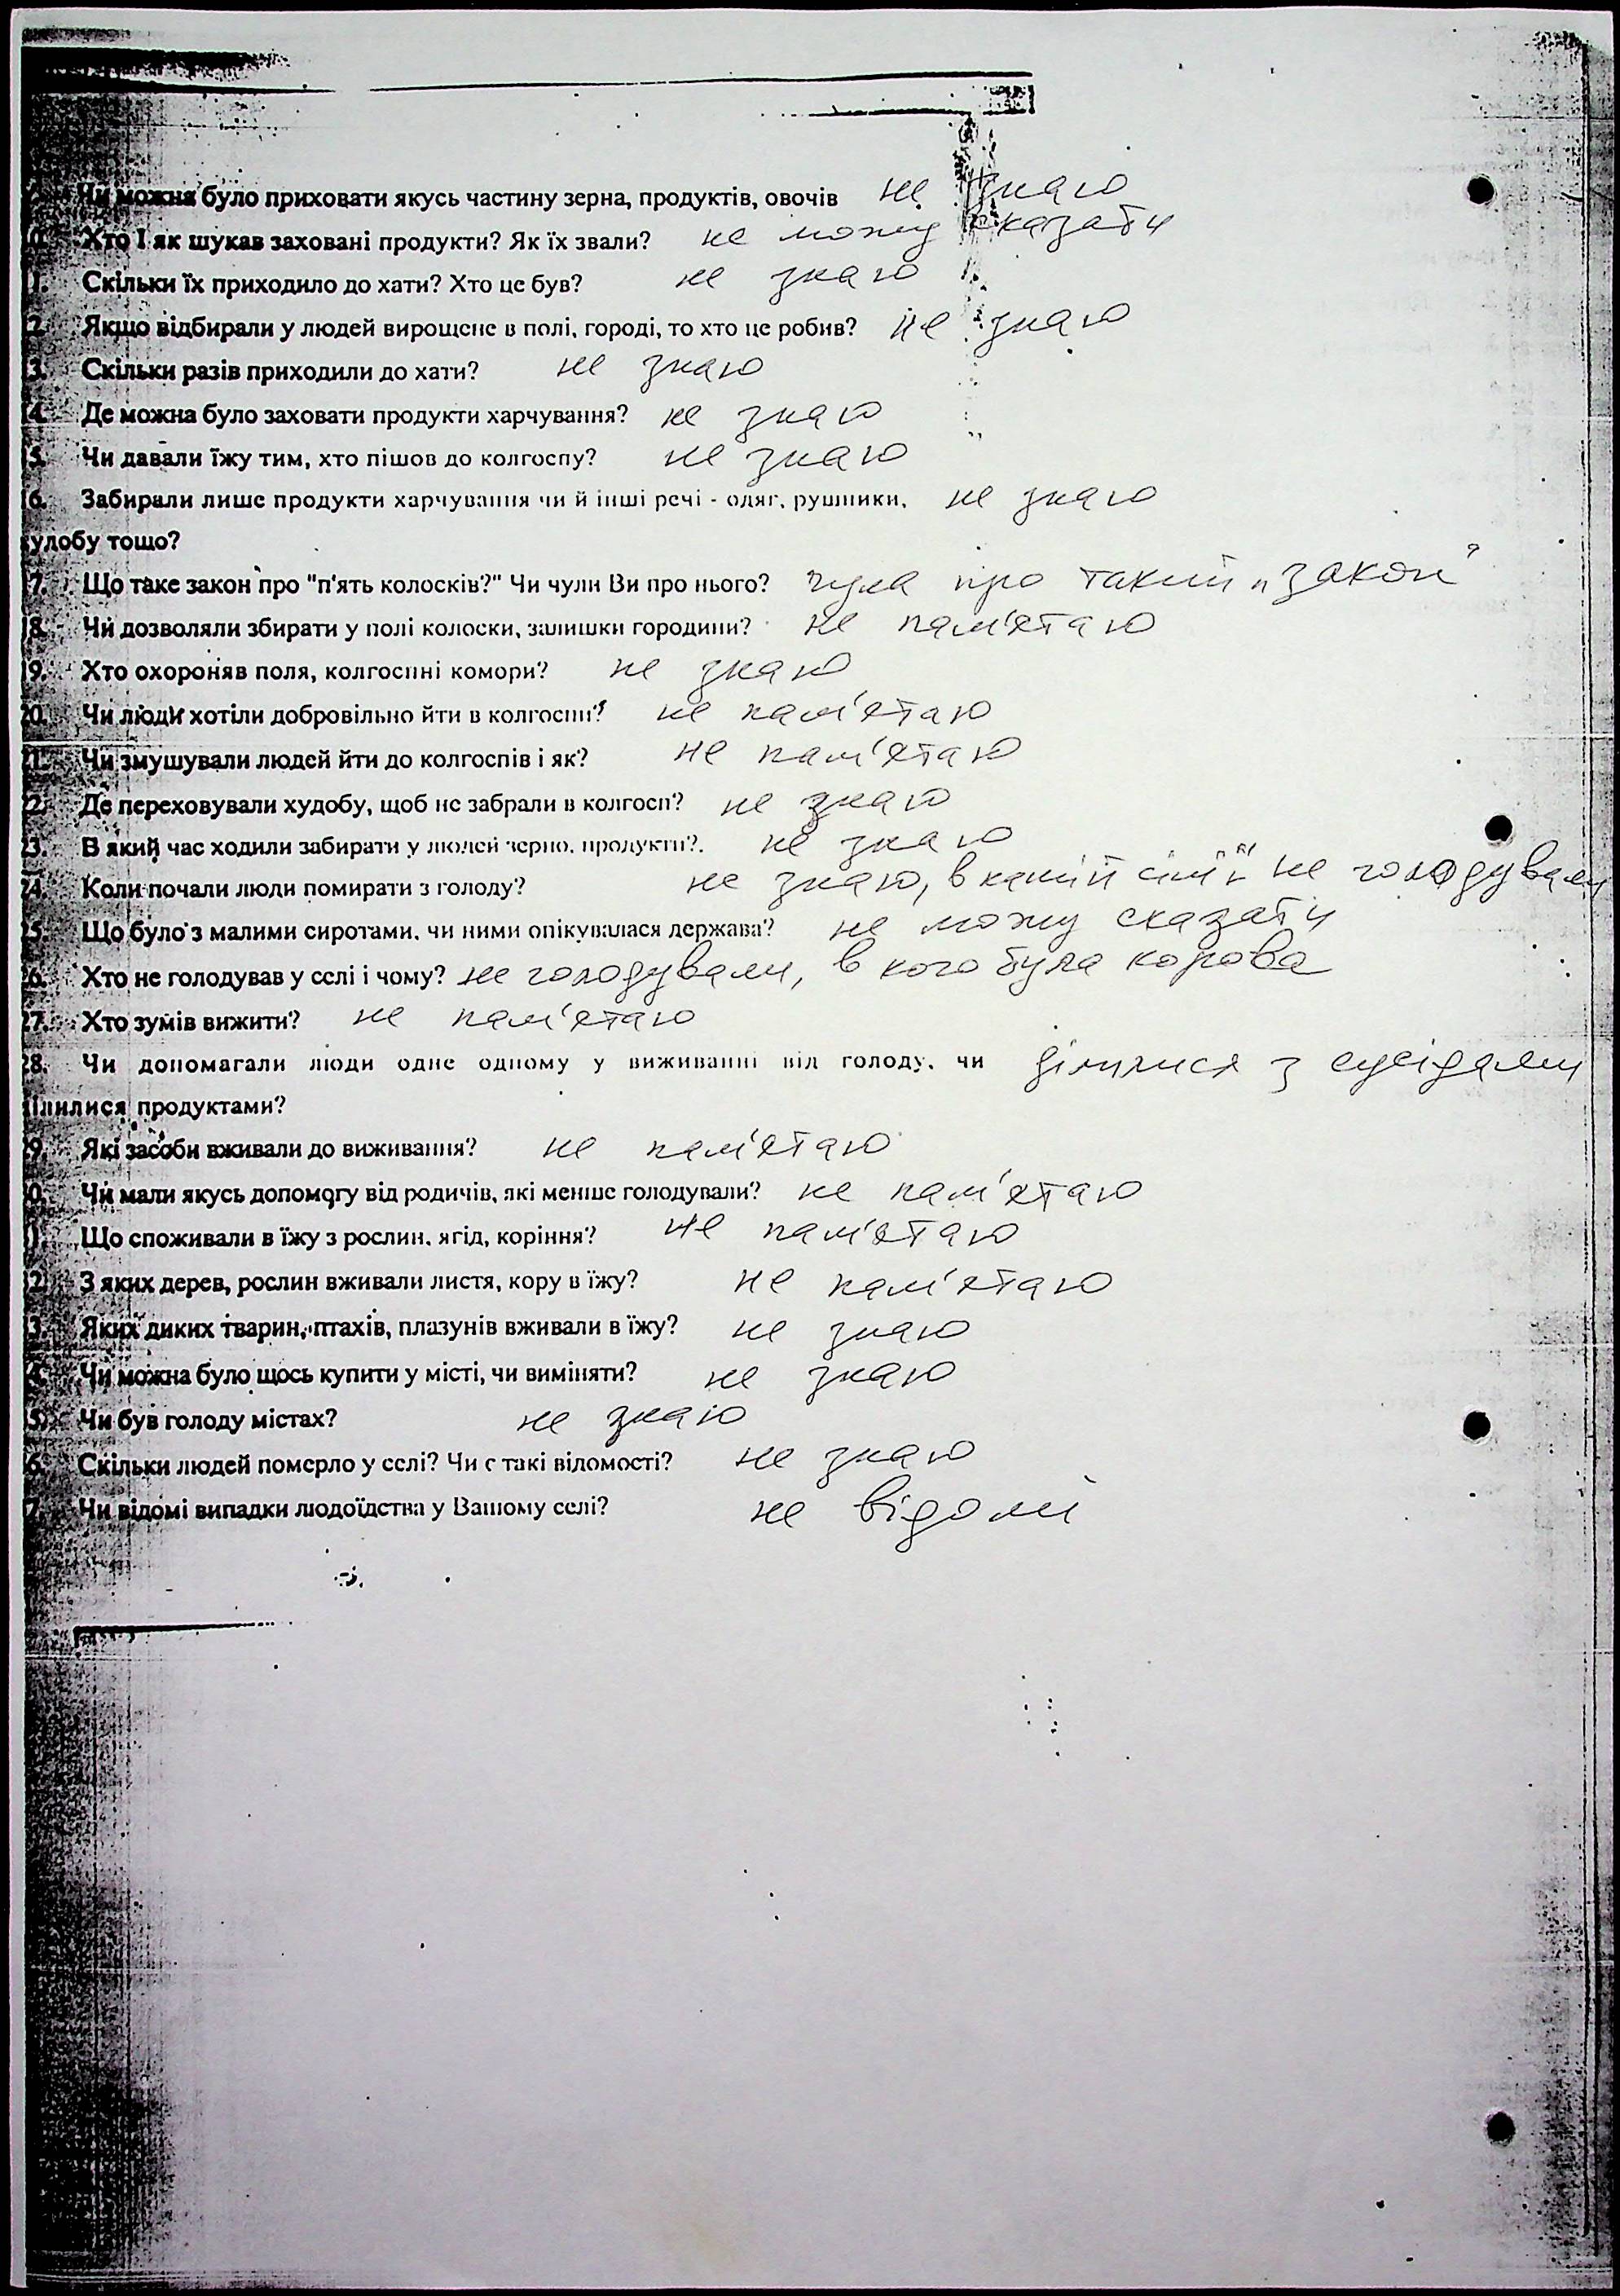 Чи можна було приховати якусь частину зерна, продуктів, овочів не знаю
0. Хто і як шукав заховані продукти? Як їх звали? не можу сказати
1. Скільки їх приходило до хати? Хто це був? не знаю
2. Якщо відбирали у людей вирощене в полі, городі, то хто це робив? не знаю
3. Скільки разів приходили до хати? не знаю
4. Де можна було заховати продукти харчування? не знаю
5. Чи давали їжу тим, хто пішов до колгоспу? не знаю
6. Забирали лише продукти харчування чи й інші речі - одяг, рушники, не знаю
худобу тощо?
7. Що таке закон про "п'ять колосків?" Чи чули Ви про нього? чула про такий „закон"
8. Чи дозволяли збирати у полі колоски, залишки городини? не пам'ятаю
9. Хто охороняв поля, колгоспні комори? не знаю
20. Чи люди хотіли добровільно йти в колгоспи? не пам'ятаю
21. Чи змушували людей йти до колгоспів і як? не пам'ятаю
22. Де переховували худобу, щоб не забрали в колгосп? не знаю
23. В який час ходили забирати у людей зерно, продукти?. не знаю
24. Коли почали люди помирати з голоду? не знаю, в нашій сім'ї не голодували
25. Що було з малими сиротами, чи ними опікувалася держава? не можу сказати
26. Хто не голодував у селі і чому? не голодували, в кого була корова
27. Хто зумів вижити? не пам'ятаю
28. Чи допомагали люди одне одному у виживанні від голоду, чи ділилися з сусідами
ділилися продуктами?
29. Які засоби вживали до виживання? не пам'ятаю
0. Чи мали якусь допомогу від родичів, які менше голодували? не пам'ятаю
1. Що споживали в їжу з рослин, ягід, коріння? не пам'ятаю
2. З яких дерев, рослин вживали листя, кору в їжу? не пам'ятаю
3. Яких диких тварин, птахів, плазунів вживали в їжу? не знаю
4. Чи можна було щось купити у місті, чи виміняти? не знаю
5. Чи був голоду містах? не знаю
6. Скільки людей померло у селі? Чи є такі відомості? не знаю
7. Чи відомі випадки людоїдства у Вашому селі? не відомі